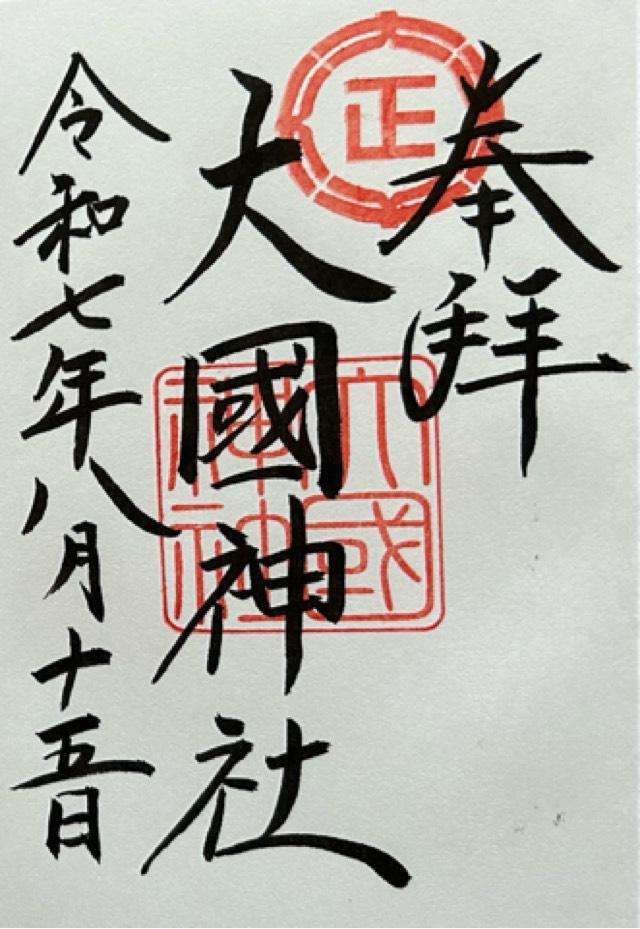 奉拝
正
大國神社
大國
神社
令和七年八月十五日